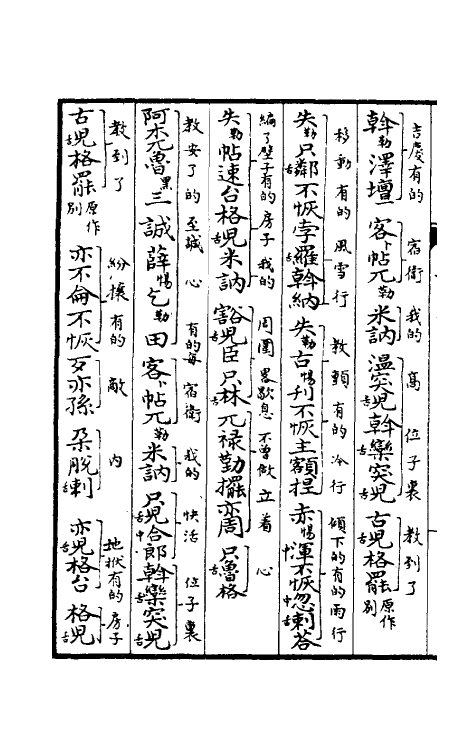 吉慶有的 宿衛 我的 高 位子裏 教到了
斡勒澤壇 客卜帖兀勒米訥 溫突舌兒斡欒突兒 古舌兒格罷原作別
移動有的 風雪行 教顫有的 冷行 傾下的有的雨行
失勒只舌鄰不恢孛舌羅斡納 失勒古惕刋不恢主額捏 赤惕中渾不恢中忽舌剌荅
編了壁子有的房子 我的 周圍 畧歇息 不曾做 立着 心
失勒帖速台格舌兒米訥 豁舌兒臣只林兀祿勤擺亦周 只舌魯格
教安了的 至誠 心 有的每 宿衛 我的 快活 位子裏
阿木兀魯黑三 誠 薛惕乞勒田 客卜帖兀勒米訥 只舌兒中合郎斡欒突舌兒
教到了 紛攘有的 敵 內 地狀有的 房子
古舌兒格罷原作別 亦不倫不恢歹亦孫 朶脫舌剌 亦舌兒格台 格舌兒